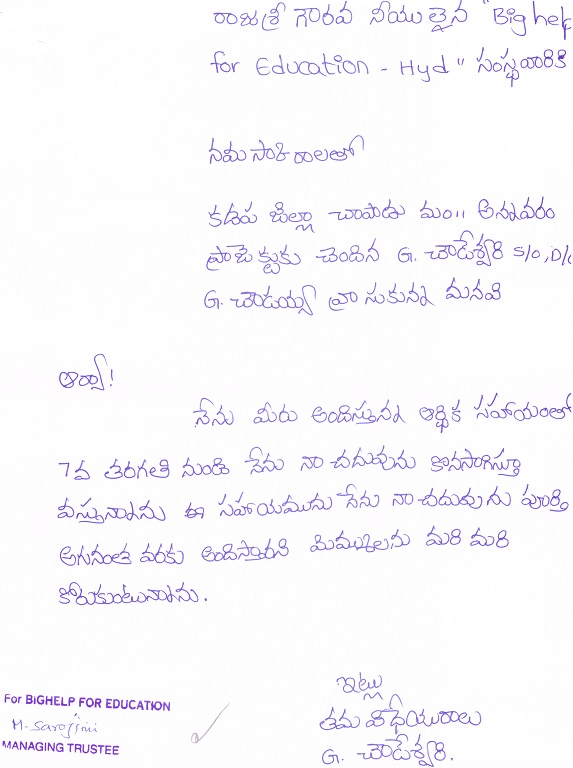 రాజశ్రీ గౌరవ నీయులైన "Big help
for Education - Hyd" సంస్థవారికి
నమసాకిరాలతో
కడప జిల్లా చాపాడు మం" అన్నవరం
ప్రాజెక్టుకు చెందిన G. చౌడేశ్వరి S/o, D/o
G. చౌడయ్య వ్రాసుకున్న మనవి
ఆర్యా!
నేను మీరు అందిస్తున్న ఆర్థిక సహాయంతో
7వ తరగతి నుండి నేను నా చదువును కొనసాగిస్తూ
వస్తున్నాను ఈ సహాయమును నేను నా చదువును పూర్తి
అగునంత వరకు అందిస్తారని మిమ్ములను మరి మరి
కోరుకుంటున్నాను.
ఇట్లు
తమ విధేయురాలు
G. చౌడేశ్వరి.
For BIGHELP FOR EDUCATION
M. Sarojini
MANAGING TRUSTEE